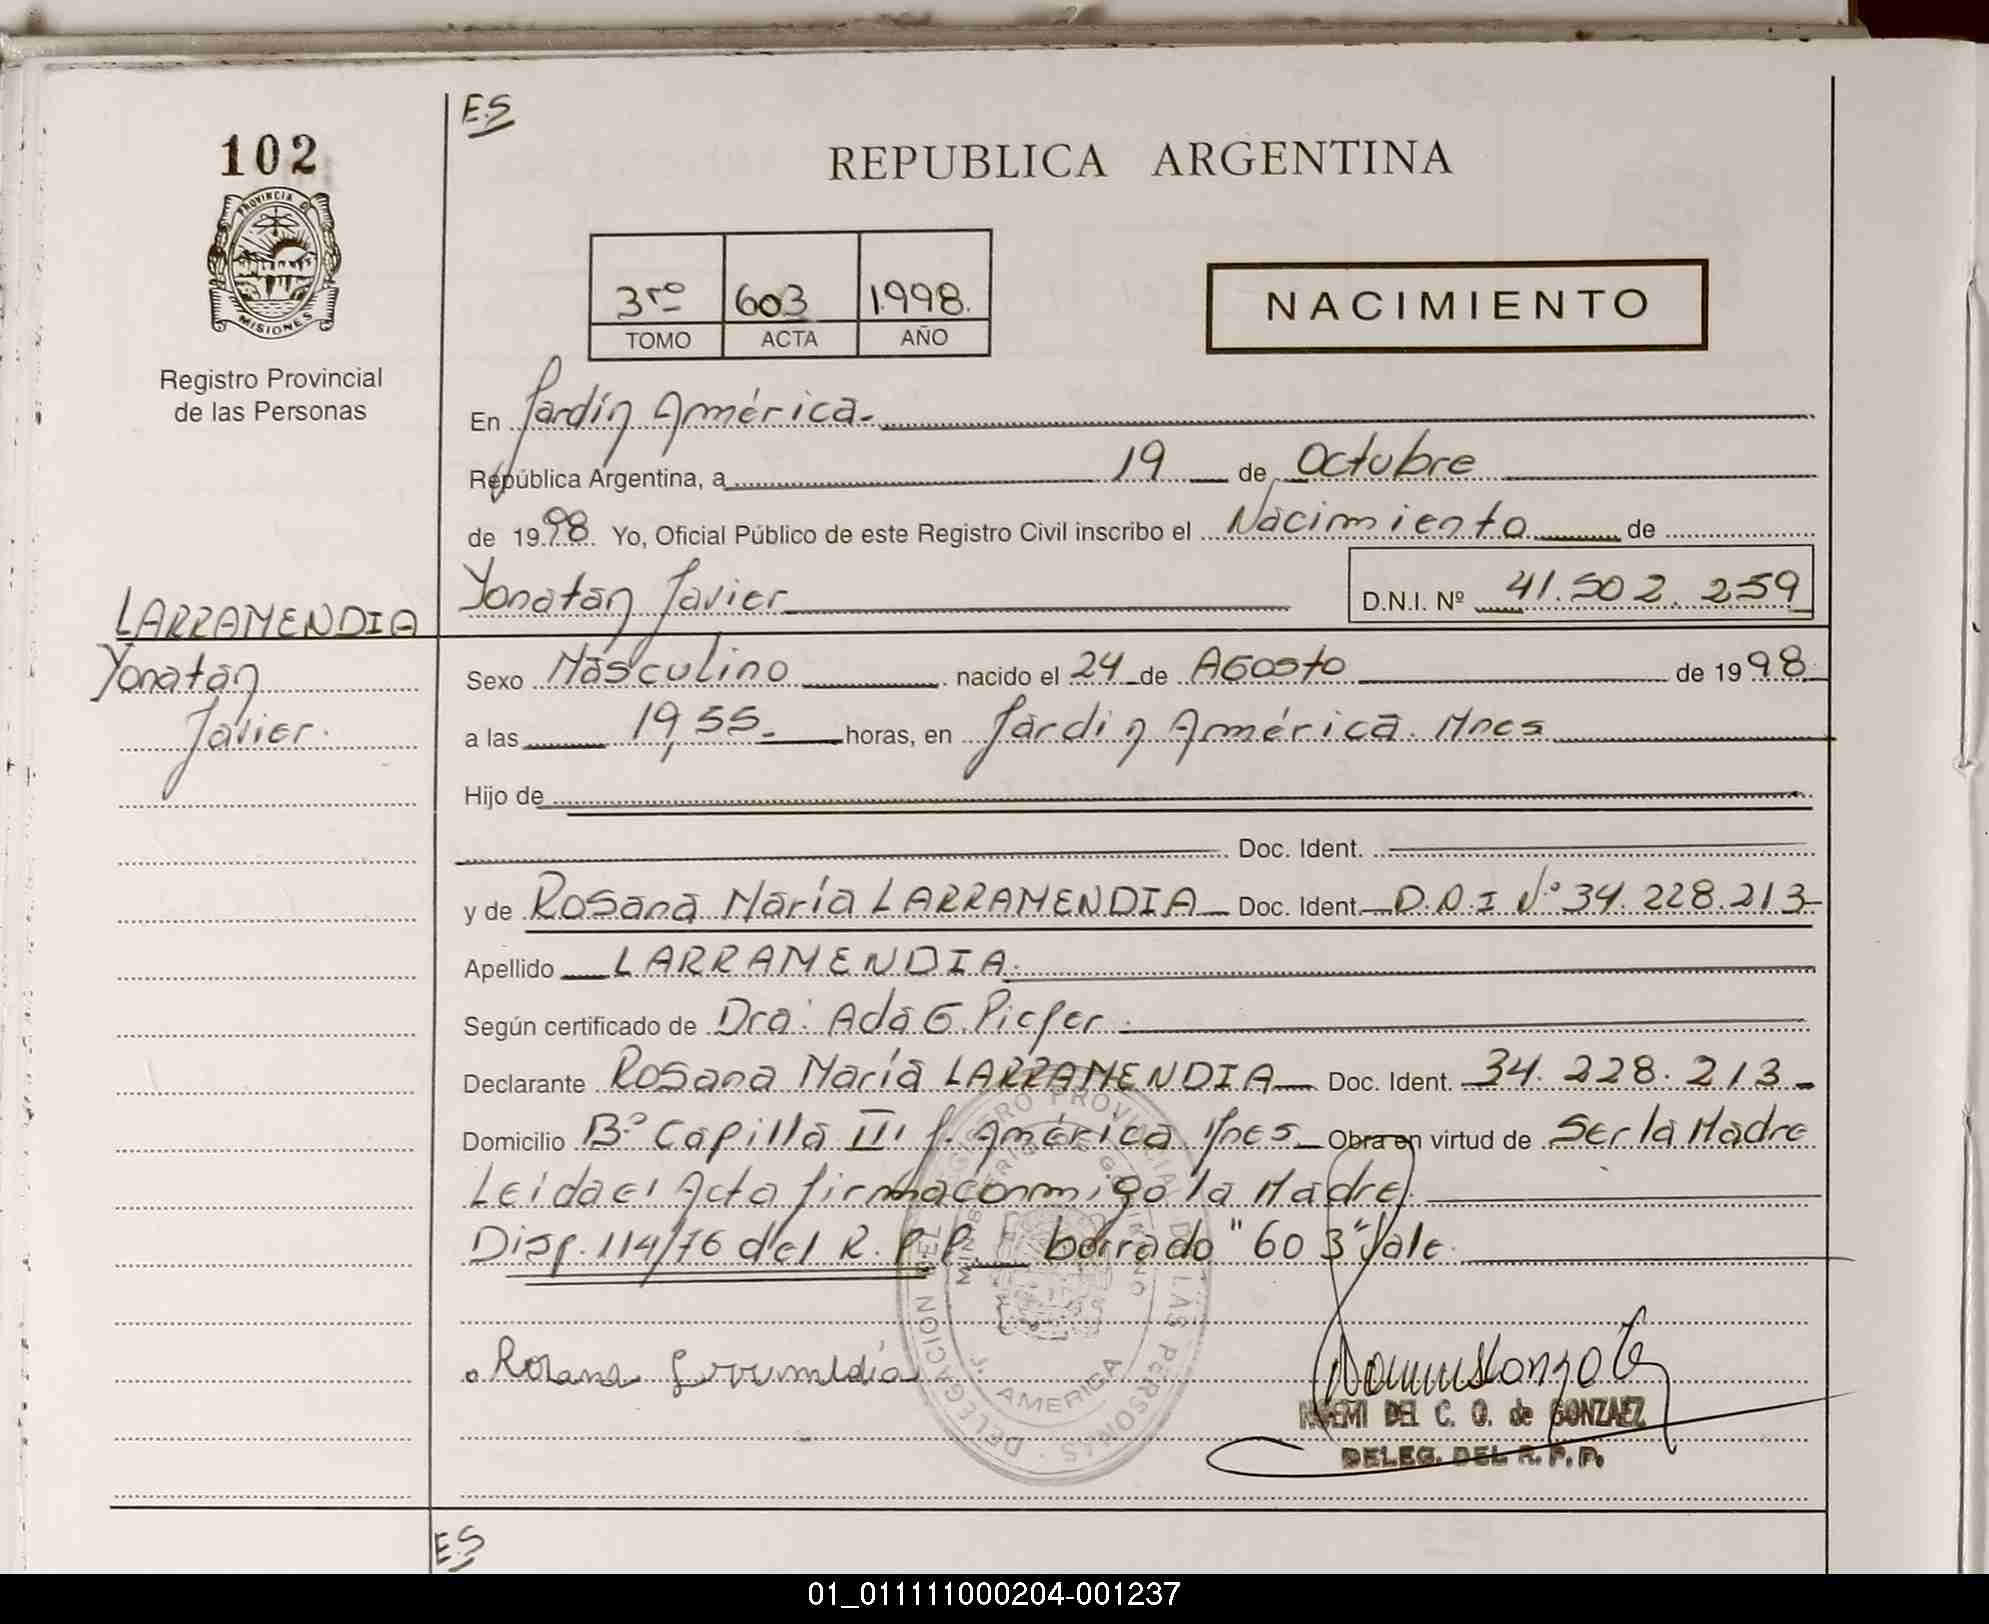 E.S
102
REPUBLICA ARGENTINA
PROVINCIA D MISIONES
3ro 603 1998.
TOMO ACTA AÑO
NACIMIENTO
Registro Provincial
de las Personas
En Jardín América.
República Argentina, a 19 de Octubre
de 1998. Yo, Oficial Público de este Registro Civil inscribo el Nacimiento de
Yonatan Javier D.N.I. Nº 41.502.259
LARRAMENDIA
Yonatan
Javier.
Sexo Masculino nacido el 24 de Agosto de 1998
a las 19,55. horas, en Jardin América. Mnes
Hijo de
Doc. Ident.
y de Rosana María LARRAMENDIA Doc. Ident. D.N.I Nº 34.228.213
Apellido LARRAMENDIA.
Según certificado de Dra: Ada G. Piefer.
Declarante Rosana María LARRAMENDIA Doc. Ident. 34.228.213
Domicilio Bº Capilla III J. América Mnes Obra en virtud de Ser la Madre
Leida el Acta firma conmigo la Madre.
Disp. 114/76 del R.P.P. borrado "603" Vale.
DELEGACION DEL REGISTRO PROVINCIAL DE LAS PERSONAS
MINISTERIO DE GOBIERNO
J. AMERICA
Rosana
NOEMI DEL C. O. de GONZAEZ
DELEG. DEL R. P. P.
ES
01_011111000204-001237